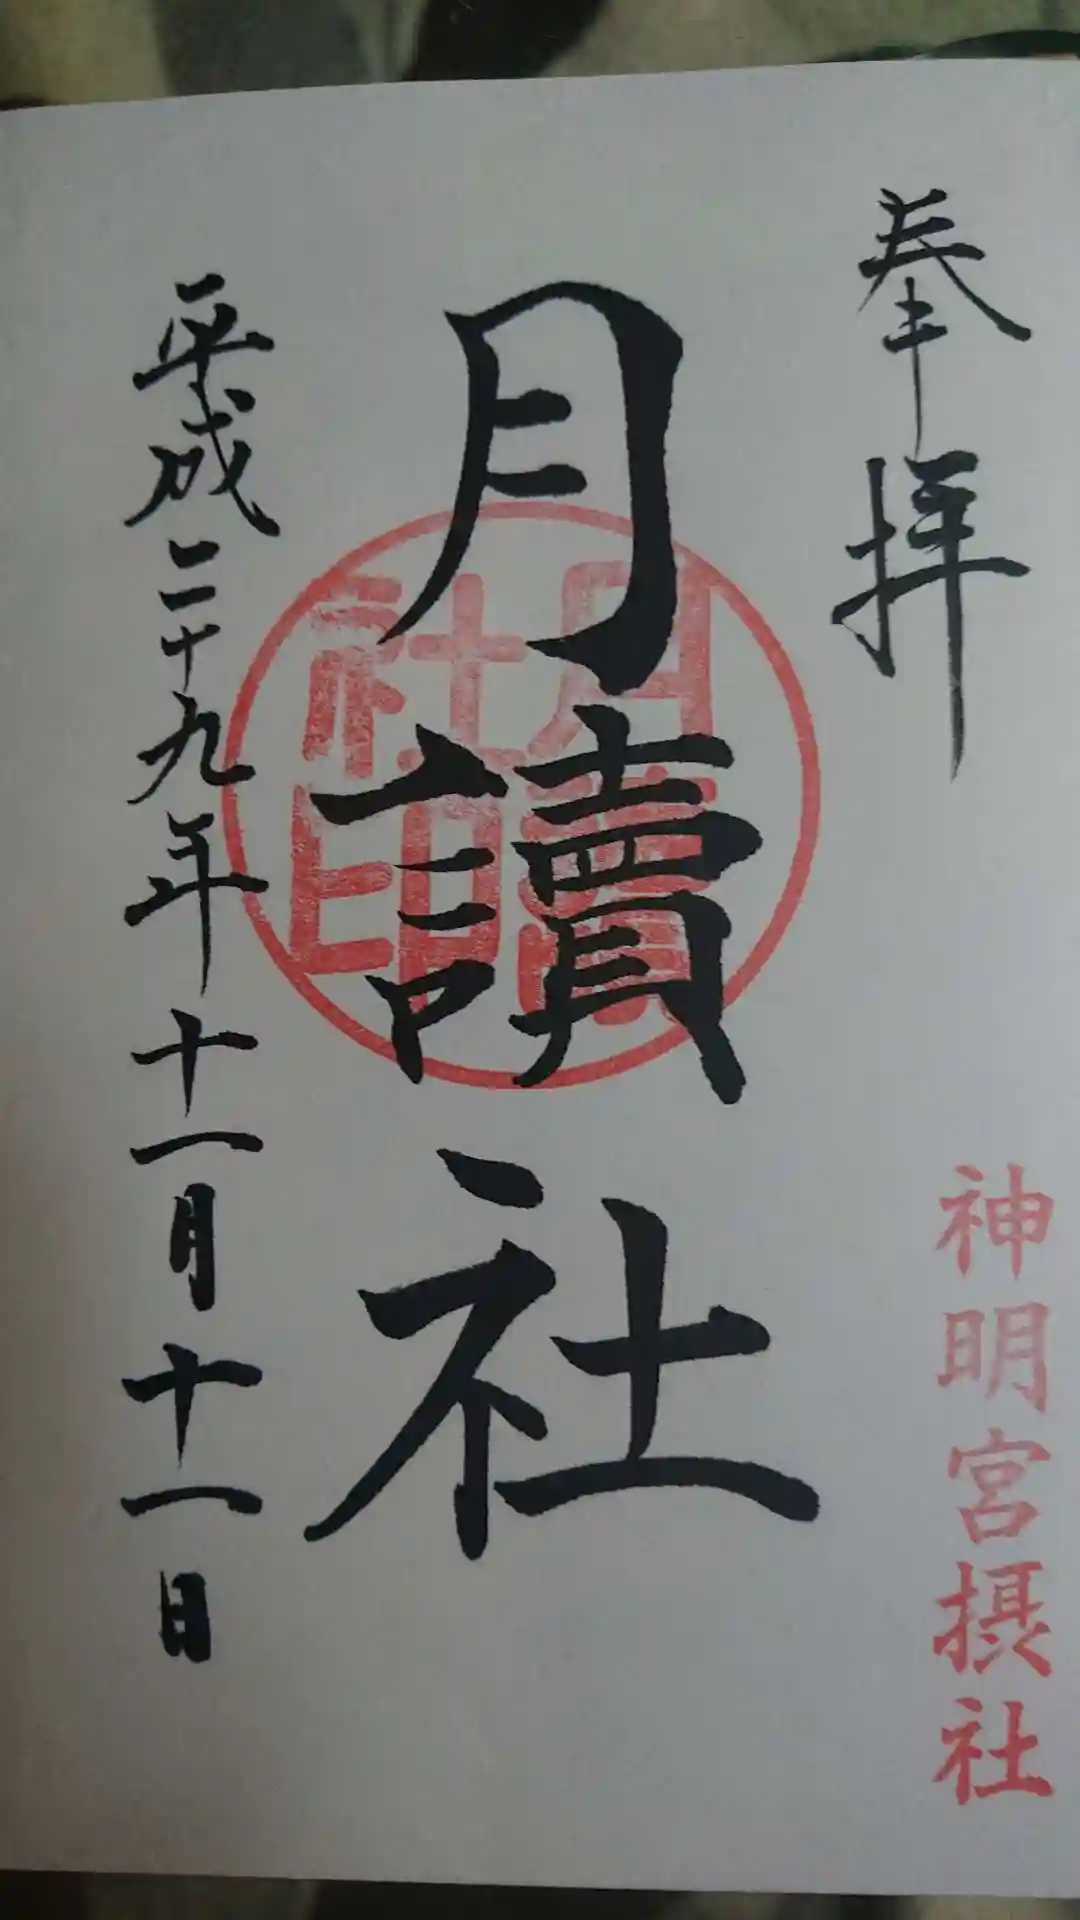 奉拝
神明宮摂社
月讀社
月讀社印
平成二十九年十一月十一日